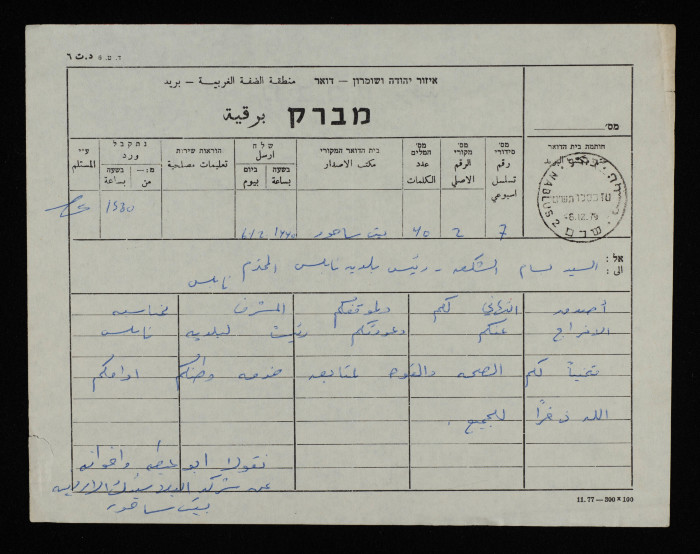 ד.ס. 6 د.ت ٦
איזור יהודה ושומרון — דואר منطقة الضفة الغربية — بريد
מברק برقية
מס׳
חותמת בית הדואר
מס׳ סידורי رقم تسلسل اسبوعي
מס׳ מקורי الرقم الاصلي
מס׳ המלים عدد الكلمات
בית הדואר המקורי مكتب الاصدار
שלח ارسل
בשעה بساعة
ביום بيوم
הוראות שירות تعليمات مصلحية
נתקבל ورد
בשעה بساعة
מ:— من
ע״י المستلم
NABLUS 2
-6.12.79
7 2 40 بيت ساحور 1440 6/12 1530
אל : الى :
السيد بسام الشكعه - رئيس بلديه نابلس المحترم
نابلس
أصدق التهاني لكم ولموقفكم المشرف بمناسبه
الافراج عنكم وعودتكم رئيسا لبلديه نابلس
نتمنى لكم الصحه والقوه لمتابعه خدمه وطنكم ادامكم
الله ذخرًا للجميع .
نقولا ابو عيطه واخوانه
عن شركه البلاستيك الاردنيه
بيت ساحور
11.77 — 300 × 100